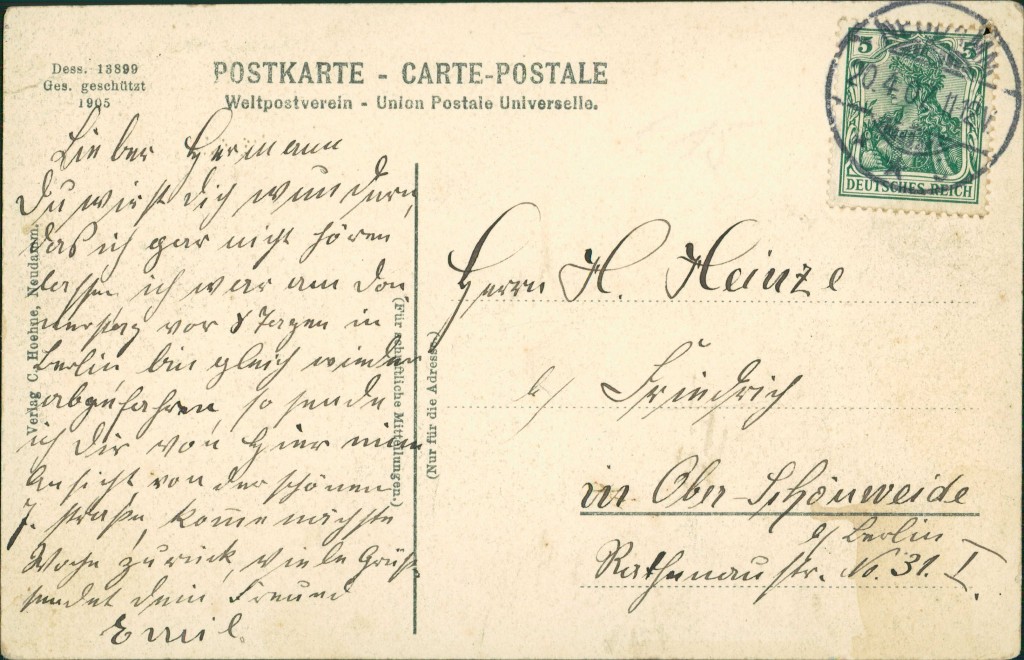 Dess. 13899
Ges. geschützt
1905
POSTKARTE - CARTE-POSTALE
Weltpostverein - Union Postale Universelle.
5 5
DEUTSCHES REICH
20.4.0
Lieber Hermann
Du wirst Dich wundern,
das ich gar nicht hören
lassen ich war am Don
nerstag vor 8 Tagen in
Berlin bin gleich wieder
abgefahren, so sende
ich Dir von hier eine
Ansicht von der schönen
7. Straße, komme nächste
Woche zurück, viele Grüße
sendet dein Freund
Emil.
Verlag C. Hoehne, Neudamm.
(Für schriftliche Mitteilungen.)
(Nur für die Adresse)
Herrn H. Heinze
b/ Friedrich
in Ober-Schönweide
b/ Berlin
Rathenau str. No. 31. I.